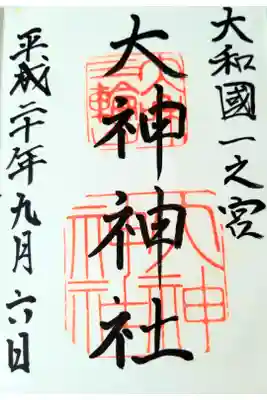 大和國一之宮
大神神社
平成二十年九月六日
大神神社